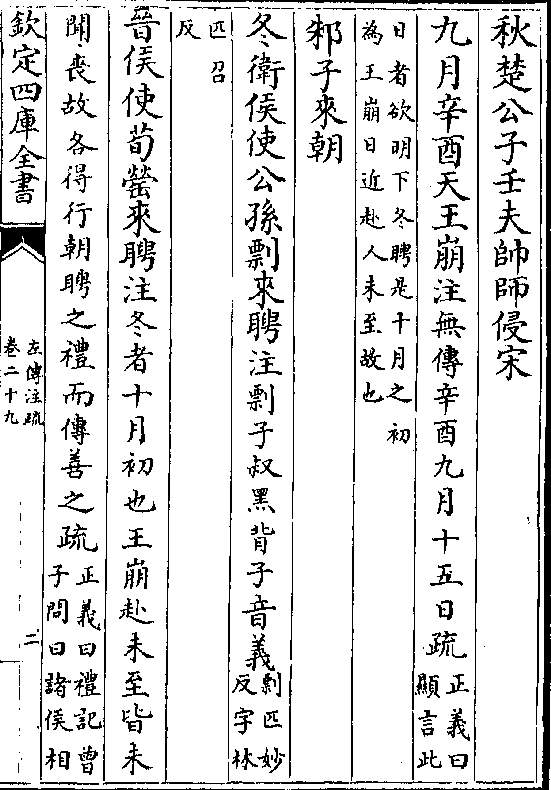 秋楚公子壬夫帥師侵宋
九月辛酉天王崩注無傳辛酉九月十五日疏正義曰
顯言此
日者欲明下冬聘是十月之初
為王崩日近赴人未至故也
邾子來朝
冬衛侯使公孫剽來聘注剽子叔黑背子音義剽匹妙
反字林
匹召
反
晉侯使荀罃來聘注冬者十月初也王崩赴未至皆未
聞喪故各得行朝聘之禮而傳善之疏正義曰禮記曾
子問曰諸侯相
欽定四庫全書
左傳注疏
卷二十九
二